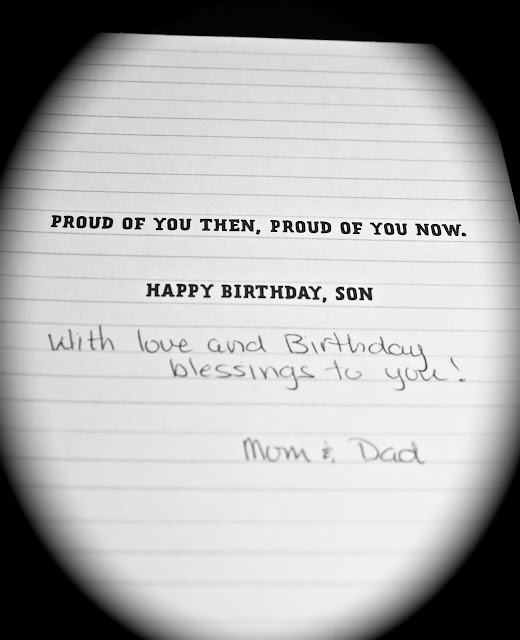 PROUD OF YOU THEN, PROUD OF YOU NOW.
HAPPY BIRTHDAY, SON
With love and Birthday
blessings to you!
Mom & Dad